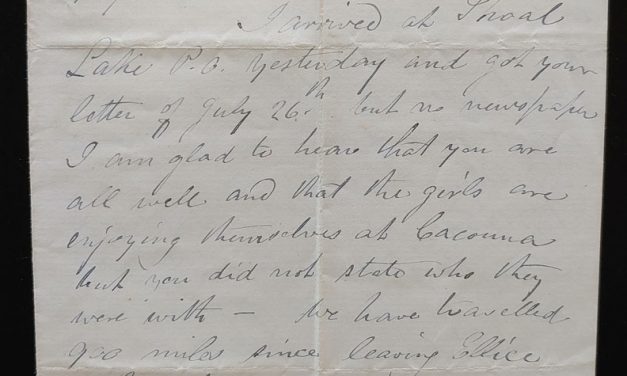 I arrived at Shoal
Lake P.O. yesterday and got your
letter of July 26th. but no newspaper
I am glad to hear that you are
all well and that the girls are
enjoying themselves at Cacouna
but you did not state who they
were with — We have travelled
900 miles since leaving Ellice